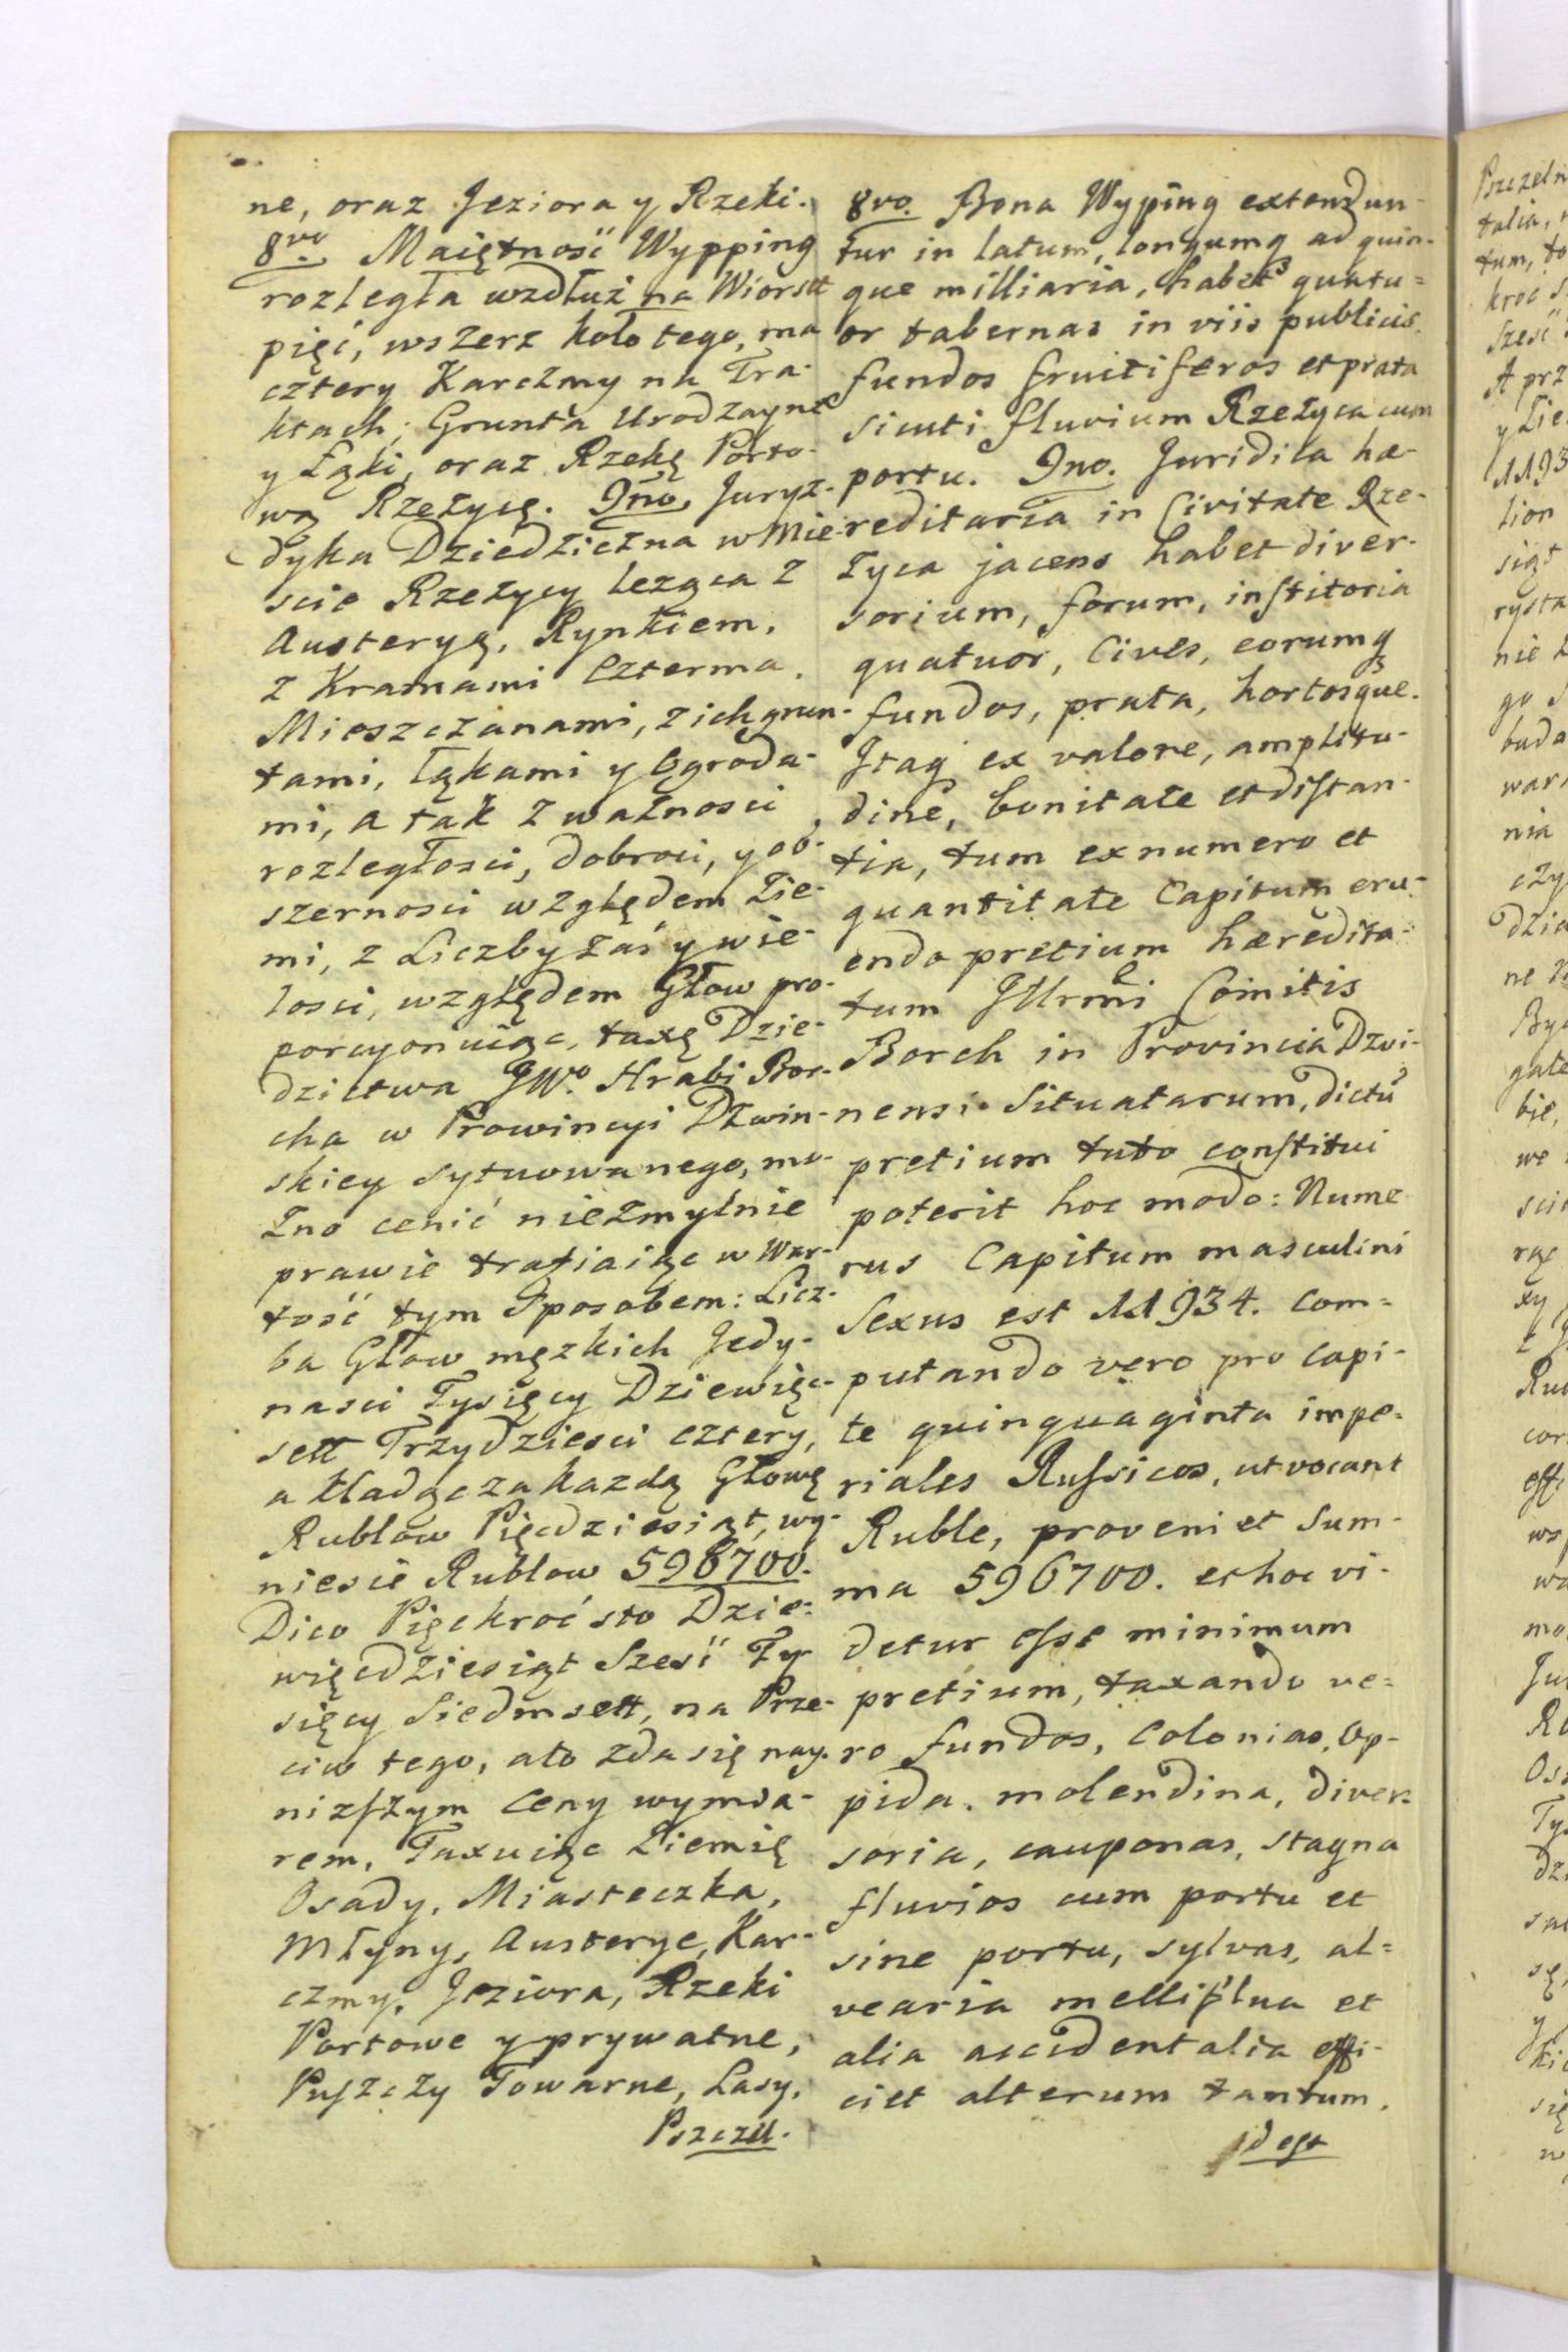 ne, oraz Jeziora y Rzeki.
8vo Maiętność Wypping
rozległa wzdłuż na Wiorstt
pięć, wszerz koło tego, ma
cztery Karczmy na Tra-
ktach; Grunta Urodzayne
y Łąki, oraz Rzekę Porto-
wą Rzeżycę. 9no, Juryz-
dyka Dziedziczna w Mie-
scie Rzeżycy leżąca z
Austeryą, Rynkiem,
z Kramami Czterma,
Mieszczanami, z ich grun-
tami, łąkami y Ogroda-
mi, a tak z ważnosci,
rozległosci, dobroci, y ob-
szernosci względem Zie-
mi, z Liczby zaś y wie-
losci, względem Głow pro-
porcyonuiąc, taxę Dzie-
dzictwa JWo. Hrabi Bor-
cha w Prowincyi Dźwin-
skiey sytuowanego, mo-
żno cenić nieżmylnie
prawie trafiaiąc w War-
tość tym Sposobem: Licz-
ba Głow męzkich Jedy-
nasci Tysięcy Dziewięc-
sett Trzydziesci cztery,
a kładąc za kazdą Głowę
Rublow Pięcdziesiąt, wy-
niesie Rublow 596700.
Dico Pięckroć sto Dzie-
więcdziesiąt Sześć Ty-
sięcy Siedmsett, na Prze-
ciw tego, ato zda się nay-
nizszym Ceny wymia-
rem, Taxuiąc Ziemię
Osady, Miasteczka,
Młyny, Austerye, Kar-
czmy, Jeziora, Rzeki
Portowe y prywatne,
Puszczy Towarne, Lasy,
Pszczel-
8vo. Bona Wyping extendun-
tur in latum, longumq ad quin-
que milliaria, habet quatu=
or tabernas in viis publicis,
fundos fruitiferos et prata
sicuti fluvium Rzeżyca cum
portu. 9no. Juridica hæ-
reditaria in Civitate Rze-
życa jacens habet diver-
sorium, forum, institoria
quatuor, Cives, eorumq
fundos, prata, hortosque.
Itaq ex valore, amplitu-
dine, bonitate et distan-
tia, tum ex numero et
quantitate Capitum eru-
endo pretium hæredita-
tum Illrmi Comitis
Borch in Provincia Dzwi-
nensi Situatarum, dictu
pretium tuto constitui
poterit hoc modo: Nume
rus Capitum masculini
Sexus est 11934. Com=
putando vero pro Capi-
te quinquaginta impe-
riales Russicos, ut vocant
Ruble, proveniet Sum-
ma 596700. et hoc vi-
detur esse minimum
pretium, taxando ve=
ro fundos, Colonias, Op-
pida, molendina, diver-
soria, cauponas, stagna
fluvios cum portu et
sine portu, sylvas, al=
vearia melliflua et
alia accidentalia effi-
ciet alterum tantum.
id est